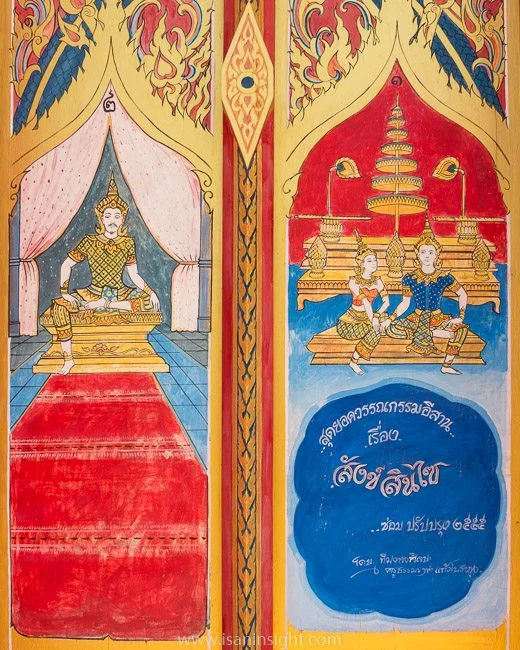 ๒
๑
..สุดยอดวรรณกรรมอีสาน..
เรื่อง.
สังข์สินไซ
..ซ่อม ปรับปรุง ๒๕๕๕
โดย
www.isaninsight.com